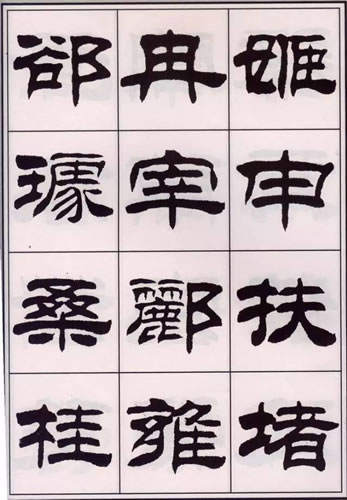 姬申扶堵
冉宰酈雍
郤璩桑桂